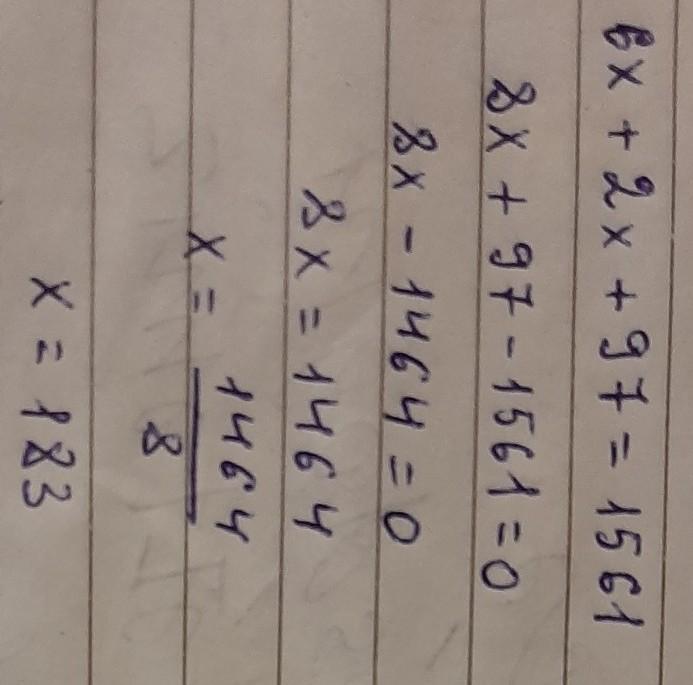 6x + 2x + 97 = 1561
8x + 97 - 1561 = 0
8x - 1464 = 0
8x = 1464
x = 1464
8
x = 183